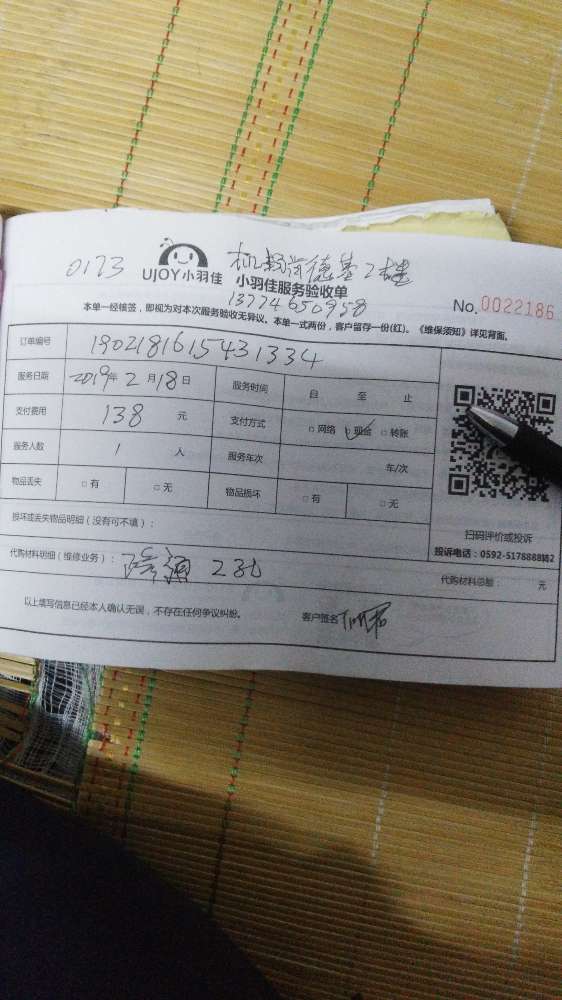 0173 机场肯德基2楼
UJOY小羽佳 小羽佳服务验收单
13774650958
No.0022186
本单一经核签，即视为对本次服务验收无异议。本单一式两份，客户留存一份(红)。《维保须知》详见背面。
订单编号 1902181615431334
服务日期 2019年 2月18日 服务时间 自 至 止
支付费用 138 元 支付方式 □ 网络 □ 现金 □ 转账
服务人数 1 人 服务车次 车/次
物品丢失 □ 有 □ 无 物品损坏 □ 有 □ 无
损坏或丢失物品明细（没有可不填）：
扫码评价或投诉
投诉电话：0592-5178888转2
代购材料明细（维修业务）： 疏通 2
代购材料总额： 元
以上填写信息已经本人确认无误，不存在任何争议纠纷。 客户签名